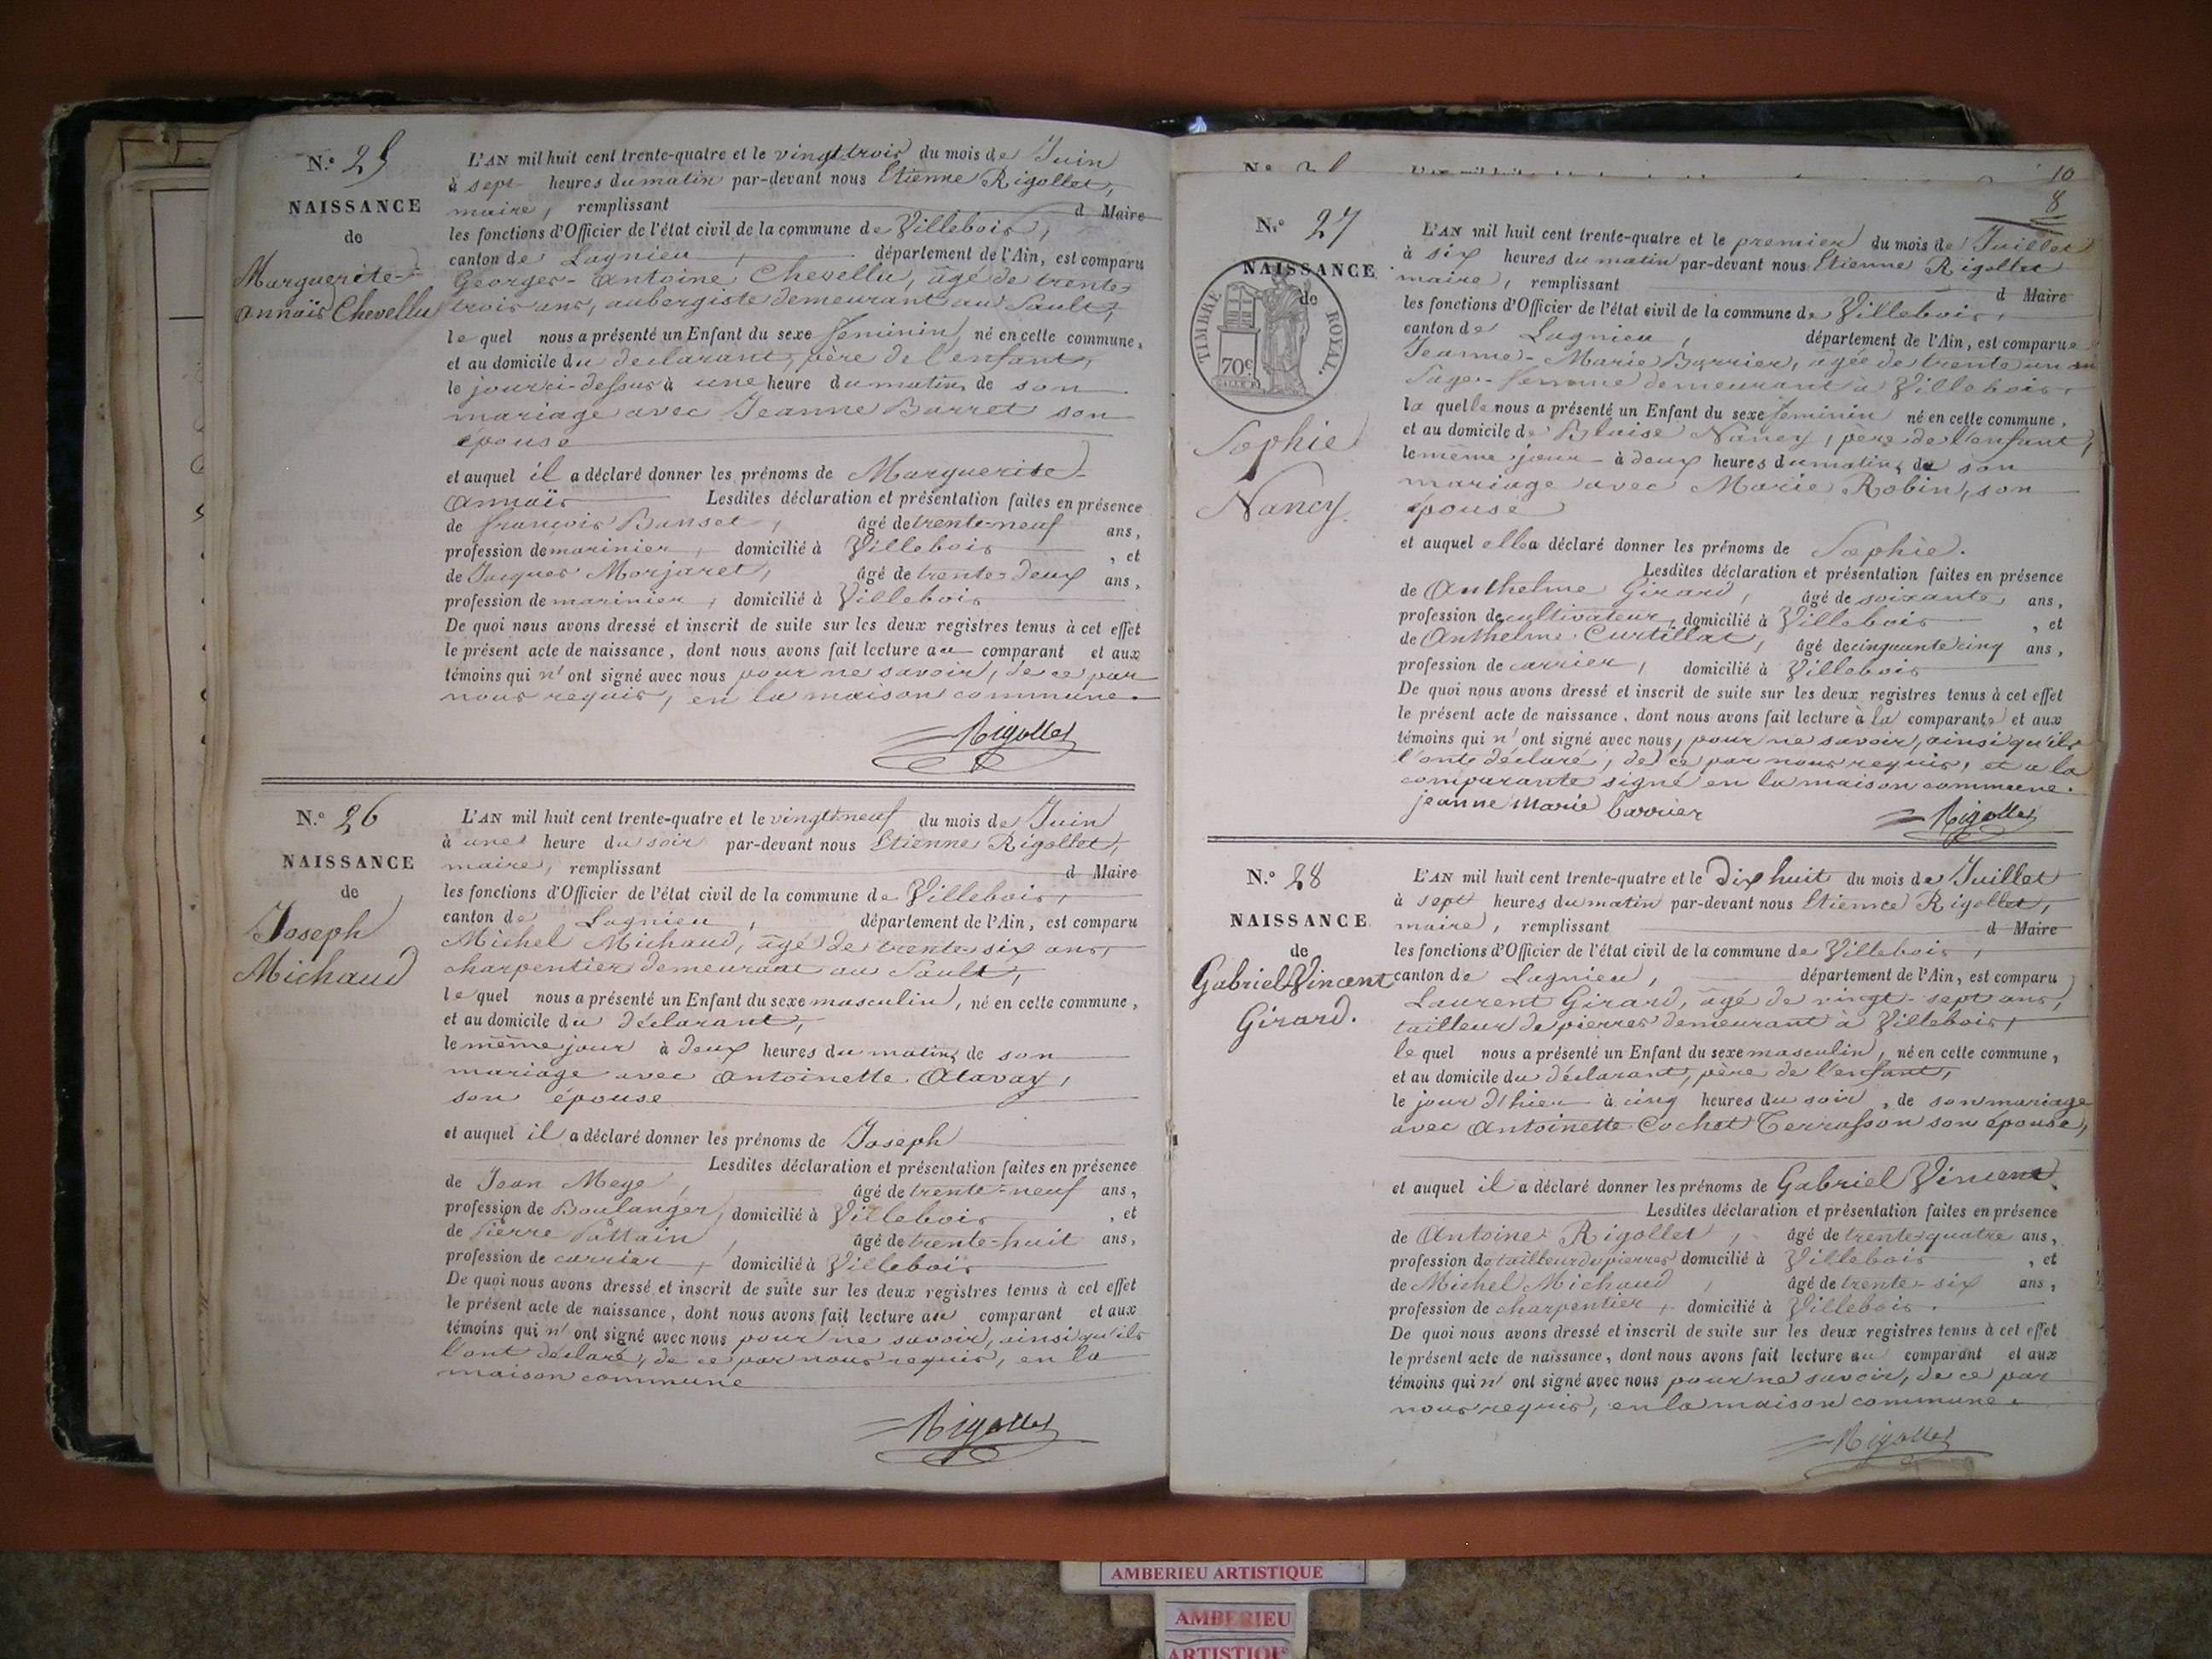 N.º 25
NAISSANCE
de
Marguerite-
annaïs Chevellu
L'AN mil huit cent trente-quatre et le vingt trois du mois de Juin
à sept heures du matin par-devant nous Etienne Rigollet,
maire, remplissant d Maire
les fonctions d'Officier de l'état civil de la commune de Villebois,
canton de Lagnieu, département de l'Ain, est comparu
Georges-Antoine Chevellu, âgé de trente
trois ans, aubergiste demeurant au Sault,
le quel nous a présenté un Enfant du sexe feminin, né en cette commune,
et au domicile du déclarant, père de l'enfant,
le jour ci-dessus à une heure du matin, de son
mariage avec Jeanne Barret son
épouse
et auquel il a déclaré donner les prénoms de Marguerite-
annaïs Lesdites déclaration et présentation faites en présence
de françois Banset, âgé de trente-neuf ans,
profession de marinier, domicilié à Villebois, et
de Jacques Morjaret, âgé de trente-deux ans,
profession de marinier, domicilié à Villebois
De quoi nous avons dressé et inscrit de suite sur les deux registres tenus à cet effet
le présent acte de naissance, dont nous avons fait lecture au comparant et aux
témoins qui n' ont signé avec nous pour ne savoir, de ce par
nous requis, en la maison commune.
Rigollet
N.º 26
NAISSANCE
de
Joseph
Michaud
L'AN mil huit cent trente-quatre et le vingt neuf du mois de Juin
à une heure du soir par-devant nous Etienne Rigollet,
maire, remplissant d Maire
les fonctions d'Officier de l'état civil de la commune de Villebois,
canton de Lagnieu, département de l'Ain, est comparu
Michel Michaud, âgé de trente six ans,
charpentier demeurant au Sault,
le quel nous a présenté un Enfant du sexe masculin, né en cette commune,
et au domicile du déclarant,
le même jour à deux heures du matin, de son
mariage avec Antoinette Alavay,
son épouse
et auquel il a déclaré donner les prénoms de Joseph
Lesdites déclaration et présentation faites en présence
de Jean Meye, âgé de trente-neuf ans,
profession de Boulanger, domicilié à Villebois, et
de Pierre Pattain, âgé de trente-huit ans,
profession de carrier, domicilié à Villebois
De quoi nous avons dressé et inscrit de suite sur les deux registres tenus à cet effet
le présent acte de naissance, dont nous avons fait lecture au comparant et aux
témoins qui n' ont signé avec nous pour ne savoir, ainsi qu'ils
l'ont déclaré, de ce par nous requis, en la
maison commune
Rigollet
10
8
N.º 27
NAISSANCE
de
TIMBRE ROYAL.
70c
Sophie
Nancy.
L'AN mil huit cent trente-quatre et le premier du mois de Juillet
à six heures du matin par-devant nous Etienne Rigollet
maire, remplissant d Maire
les fonctions d'Officier de l'état civil de la commune de Villebois,
canton de Lagnieu, département de l'Ain, est comparue
Jeanne-Marie Barrier, âgée de trente un an
Sage-femme demeurant à Villebois,
la quelle nous a présenté un Enfant du sexe feminin né en cette commune,
et au domicile de Blaise Nancy, père de l'enfant,
le même jour à deux heures du matin, de son
mariage avec Marie Robin, son
épouse
et auquel elle a déclaré donner les prénoms de Sophie.
Lesdites déclaration et présentation faites en présence
de Anthelme Girard, âgé de soixante ans,
profession de cultivateur, domicilié à Villebois, et
de Anthelme Curtillat, âgé de cinquante cinq ans,
profession de carrier, domicilié à Villebois
De quoi nous avons dressé et inscrit de suite sur les deux registres tenus à cet effet
le présent acte de naissance, dont nous avons fait lecture à la comparante et aux
témoins qui n' ont signé avec nous, pour ne savoir, ainsi qu'ils
l'ont déclaré, de ce par nous requis, et a la
comparante signé en la maison commune.
jeanne marie barrier Rigollet
N.º 28
NAISSANCE
de
Gabriel Vincent
Girard.
L'AN mil huit cent trente-quatre et le Dix huit du mois de Juillet
à sept heures du matin par-devant nous Etienne Rigollet,
maire, remplissant d Maire
les fonctions d'Officier de l'état civil de la commune de Villebois,
canton de Lagnieu, département de l'Ain, est comparu
Laurent Girard, âgé de vingt-sept ans,
tailleur de pierres demeurant à Villebois,
le quel nous a présenté un Enfant du sexe masculin, né en cette commune,
et au domicile du déclarant, père de l'enfant,
le jour d'hier à cinq heures du soir, de son mariage
avec Antoinette Cochet Terrasson son épouse,
et auquel il a déclaré donner les prénoms de Gabriel Vincent.
Lesdites déclaration et présentation faites en présence
de Antoine Rigollet, âgé de trente quatre ans,
profession de tailleur de pierres domicilié à Villebois, et
de Michel Michaud, âgé de trente-six ans,
profession de charpentier, domicilié à Villebois.
De quoi nous avons dressé et inscrit de suite sur les deux registres tenus à cet effet
le présent acte de naissance, dont nous avons fait lecture au comparant et aux
témoins qui n' ont signé avec nous pour ne savoir, de ce par
nous requis, en la maison commune.
Rigollet
AMBERIEU ARTISTIQUE
AMBERIEU
ARTISTIQUE